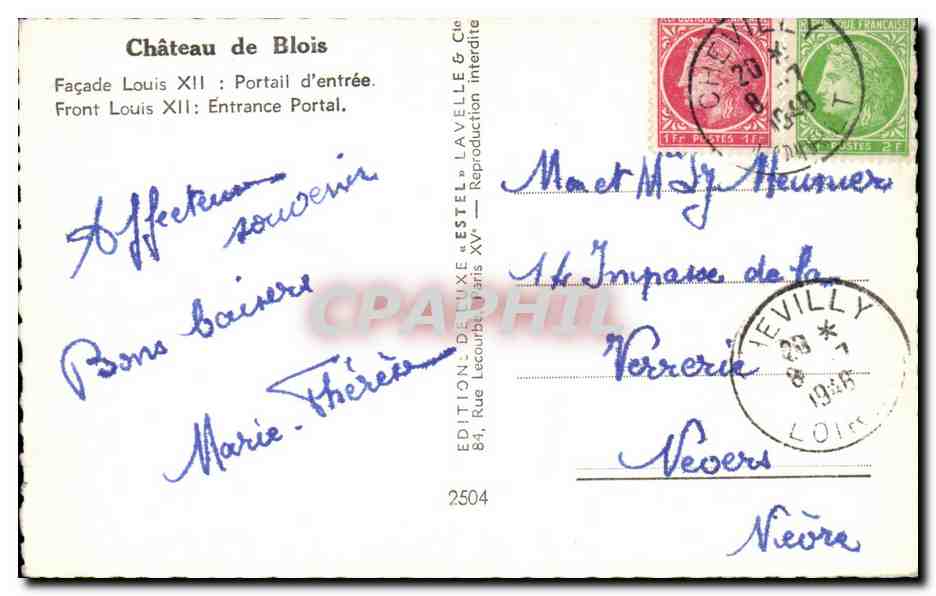 Château de Blois
Façade Louis XII : Portail d'entrée.
Front Louis XII : Entrance Portal.
Affectueux
souvenir
Bons baisers
Marie-Thérèse
EDITIONS DE LUXE "ESTEL" LAVELLE & Cie
84, Rue Lecourbe, Paris XVe — Reproduction interdite
2504
1Fr POSTES 1Fr
POSTES 2F
CHEVILLY
20 *
8 -7
1948
LOIRET
Mr et Mme Meunier
14 Impasse de la
Verrerie
Nevers
Nièvre
HEVILLY
20 *
8 -7
1948
LOIR
CPAPHIL